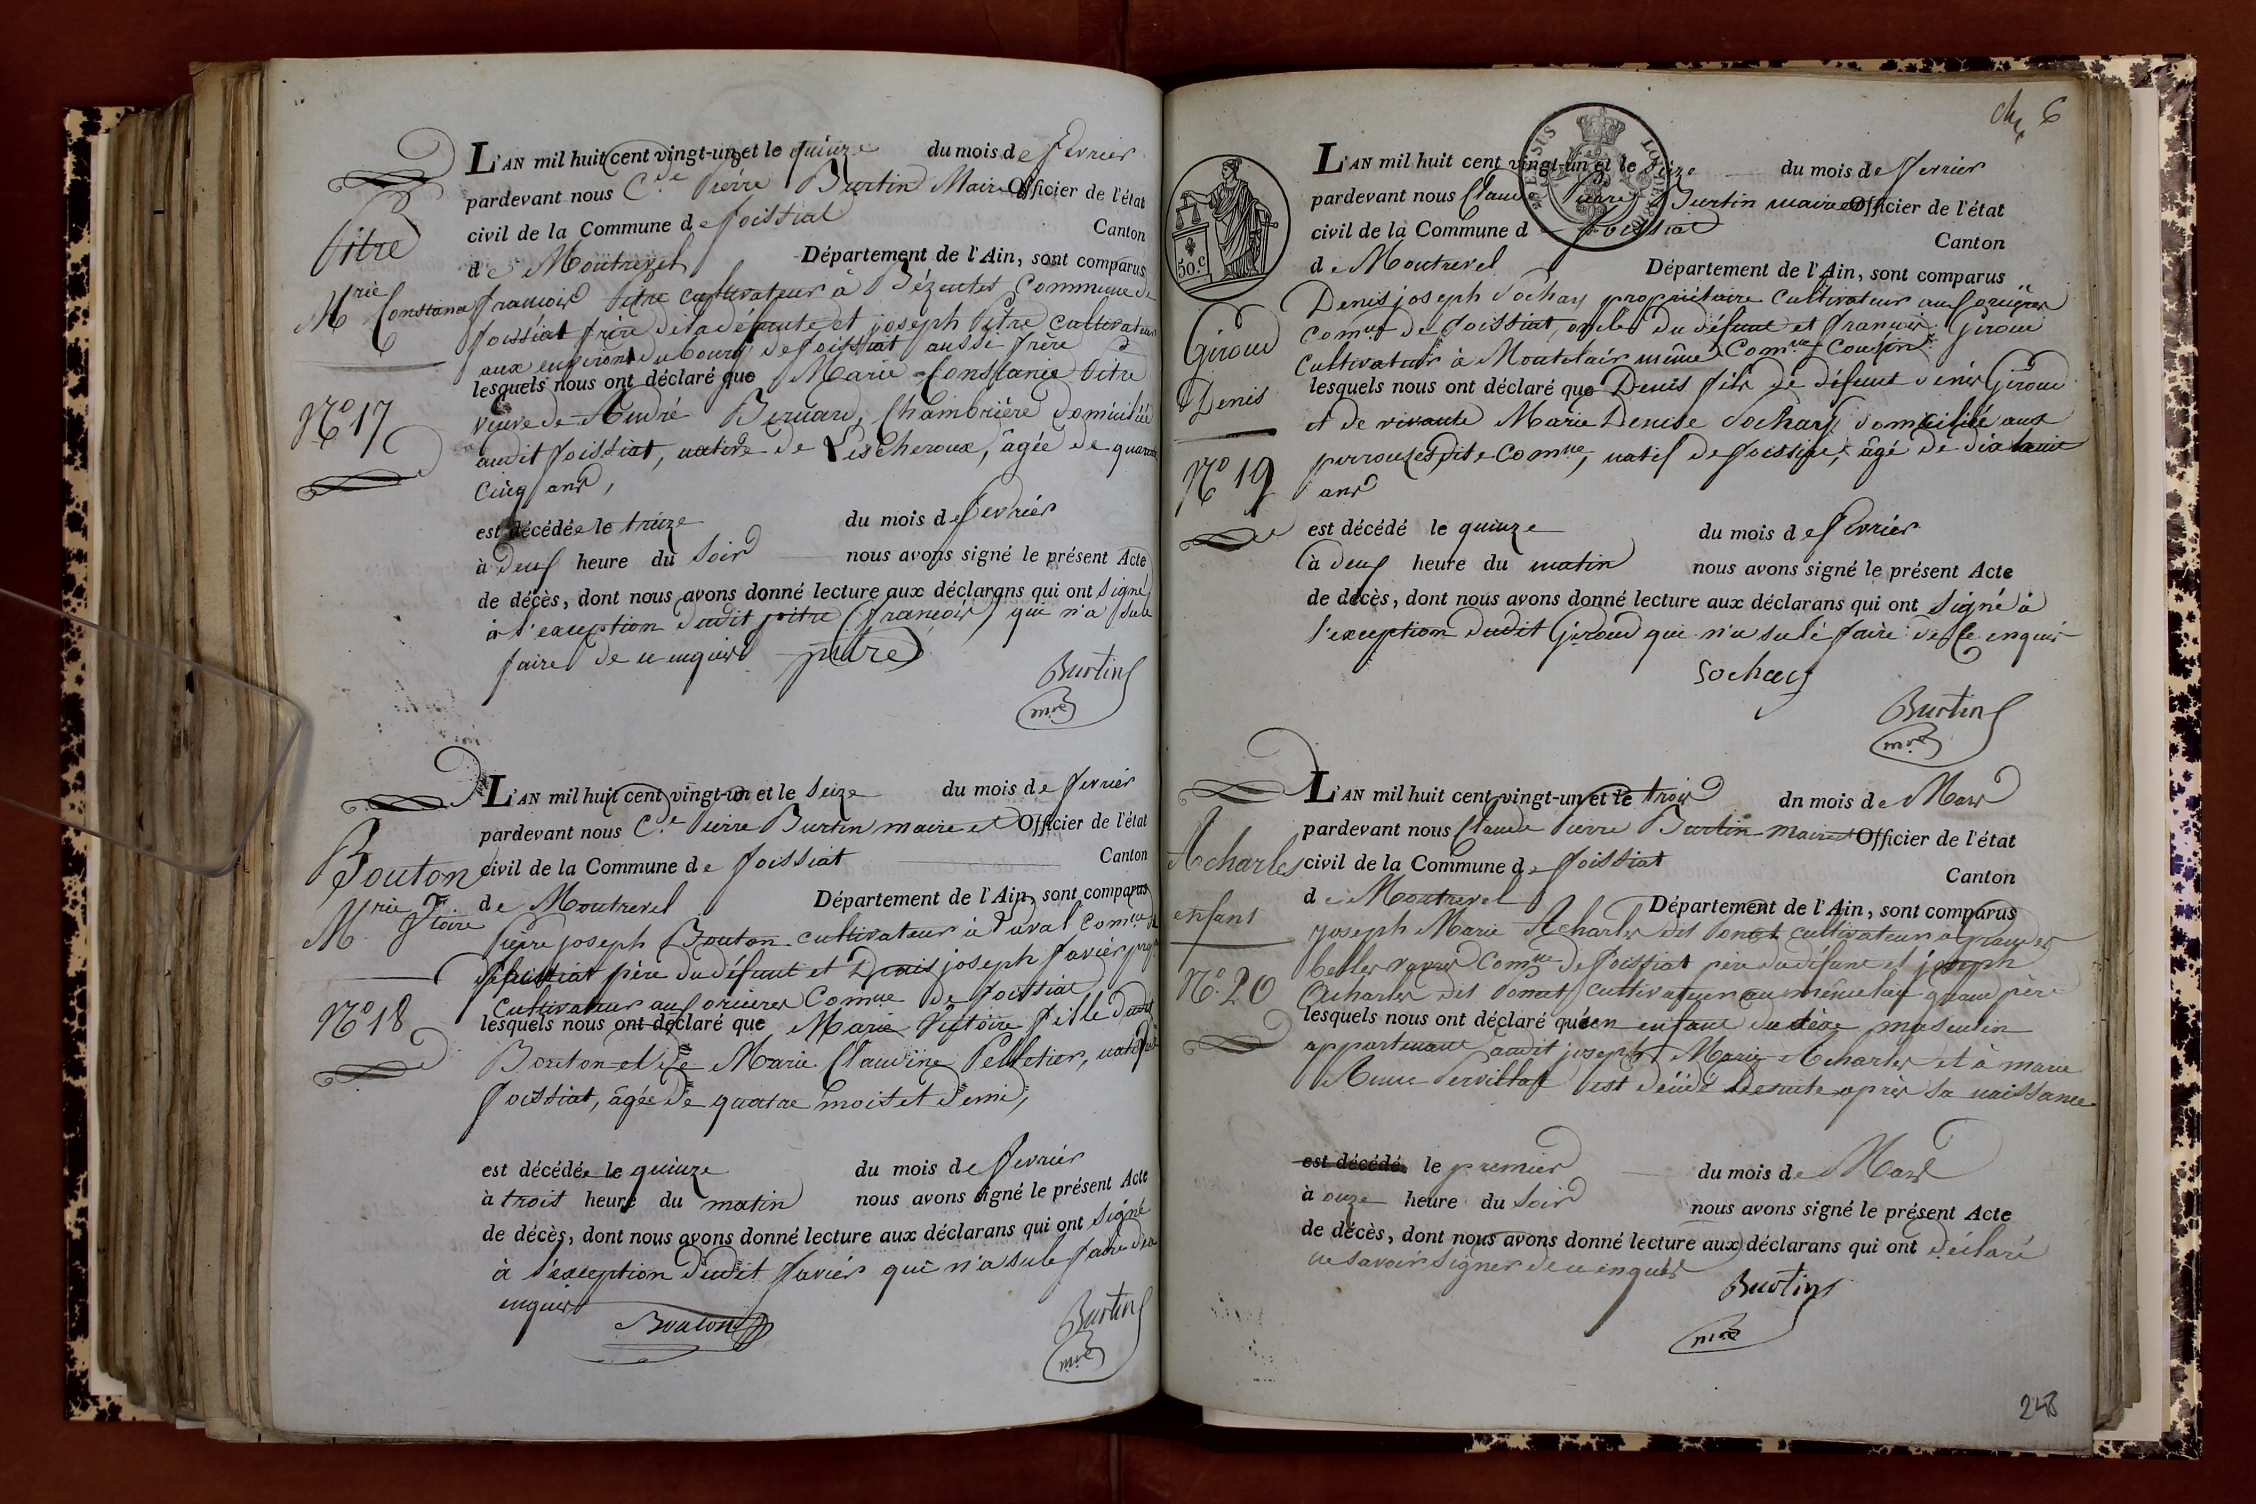 Pitre
Mrie Constance
N° 17
L'AN mil huit cent vingt-un et le quinze du mois de fevrier
pardevant nous C.de Pierre Burtin Maire Officier de l'état
civil de la Commune de foissiat Canton
de Montrevel Département de l'Ain, sont comparus
francois Pitre cultivateur à Bézentet Commune de
foissiat frère de la défunte et joseph Pitre cultivateur
aux environs du bourg de foissiat aussi frère
lesquels nous ont déclaré que Marie Constance Pitre
veuve de André Bernard, Chambrière domiciliée
audit foissiat, native de Lescheroux, âgée de quarante
cinq ans,
est décédée le treize du mois de fevrier
à deux heure du soir nous avons signé le présent Acte
de décès, dont nous avons donné lecture aux déclarans qui ont signé
à l'exception dudit pitre (francois) qui n'a su le
faire de ce enquis pitre
Burtin
mre
Bouton
Mrie Vtoire
N° 18
L'AN mil huit cent vingt-un et le seize du mois de fevrier
pardevant nous C.de Pierre Burtin maire et Officier de l'état
civil de la Commune de foissiat Canton
de Montrevel Département de l'Ain, sont comparus
Pierre joseph Bouton cultivateur à Laval Comune de
foissiat père du défunt et Denis joseph favier
cultivateur aux orcières Comne de foissiat
lesquels nous ont déclaré que Marie Victoire fille dudit
Bouton et de Marie Claudine Pelletier, native de
foissiat, âgée de quatre mois et demi,
est décédée le quinze du mois de fevrier
à trois heure du matin nous avons signé le présent Acte
de décès, dont nous avons donné lecture aux déclarans qui ont signé
à l'exception dudit favier qui n'a su le faire de ce
enquis
Bouton
Burtin
mre
6
50.c
Giroud
Denis
N° 19
L'AN mil huit cent vingt-un et le seize du mois de fevrier
pardevant nous Claude Pierre Burtin maire et Officier de l'état
civil de la Commune de foissiat Canton
de Montrevel Département de l'Ain, sont comparus
Denis joseph Sochay propriétaire cultivateur aux orcières
Comne de foissiat, oncle du défunt et francois Giroud
cultivateur à Montclair même Comne Cousin
lesquels nous ont déclaré que Denis fils de défunt Denis Giroud
et de vivante Marie Denise Sochay domiciliée aux
perrouses dite Comne, natif de foissiat, âgé de dix huit
ans
est décédé le quinze du mois de fevrier
à deux heure du matin nous avons signé le présent Acte
de décès, dont nous avons donné lecture aux déclarans qui ont signé à
l'exception dudit Giroud qui n'a su le faire de ce enquis
Sochay
Burtin
mre
Acharles
enfant
N° 20
L'AN mil huit cent vingt-un et le trois dn mois de Mars
pardevant nous Claude Pierre Burtin maire et Officier de l'état
civil de la Commune de foissiat Canton
de Montrevel Département de l'Ain, sont comparus
joseph Marie Acharles dit Ponet cultivateur à grandes
belles vavres Comne de foissiat père du défunt et joseph
Acharles dit Ponet cultivateur au même lieu grand père
lesquels nous ont déclaré qu'un enfant du sexe masculin
appartenant audit joseph Marie Acharles et à marie
Anne est décédé de suite après sa naissance
est décédé le premier du mois de Mars
à onze heure du soir nous avons signé le présent Acte
de décès, dont nous avons donné lecture aux déclarans qui ont déclaré
ne savoir signer de ce enquis
Burtin
mre
248